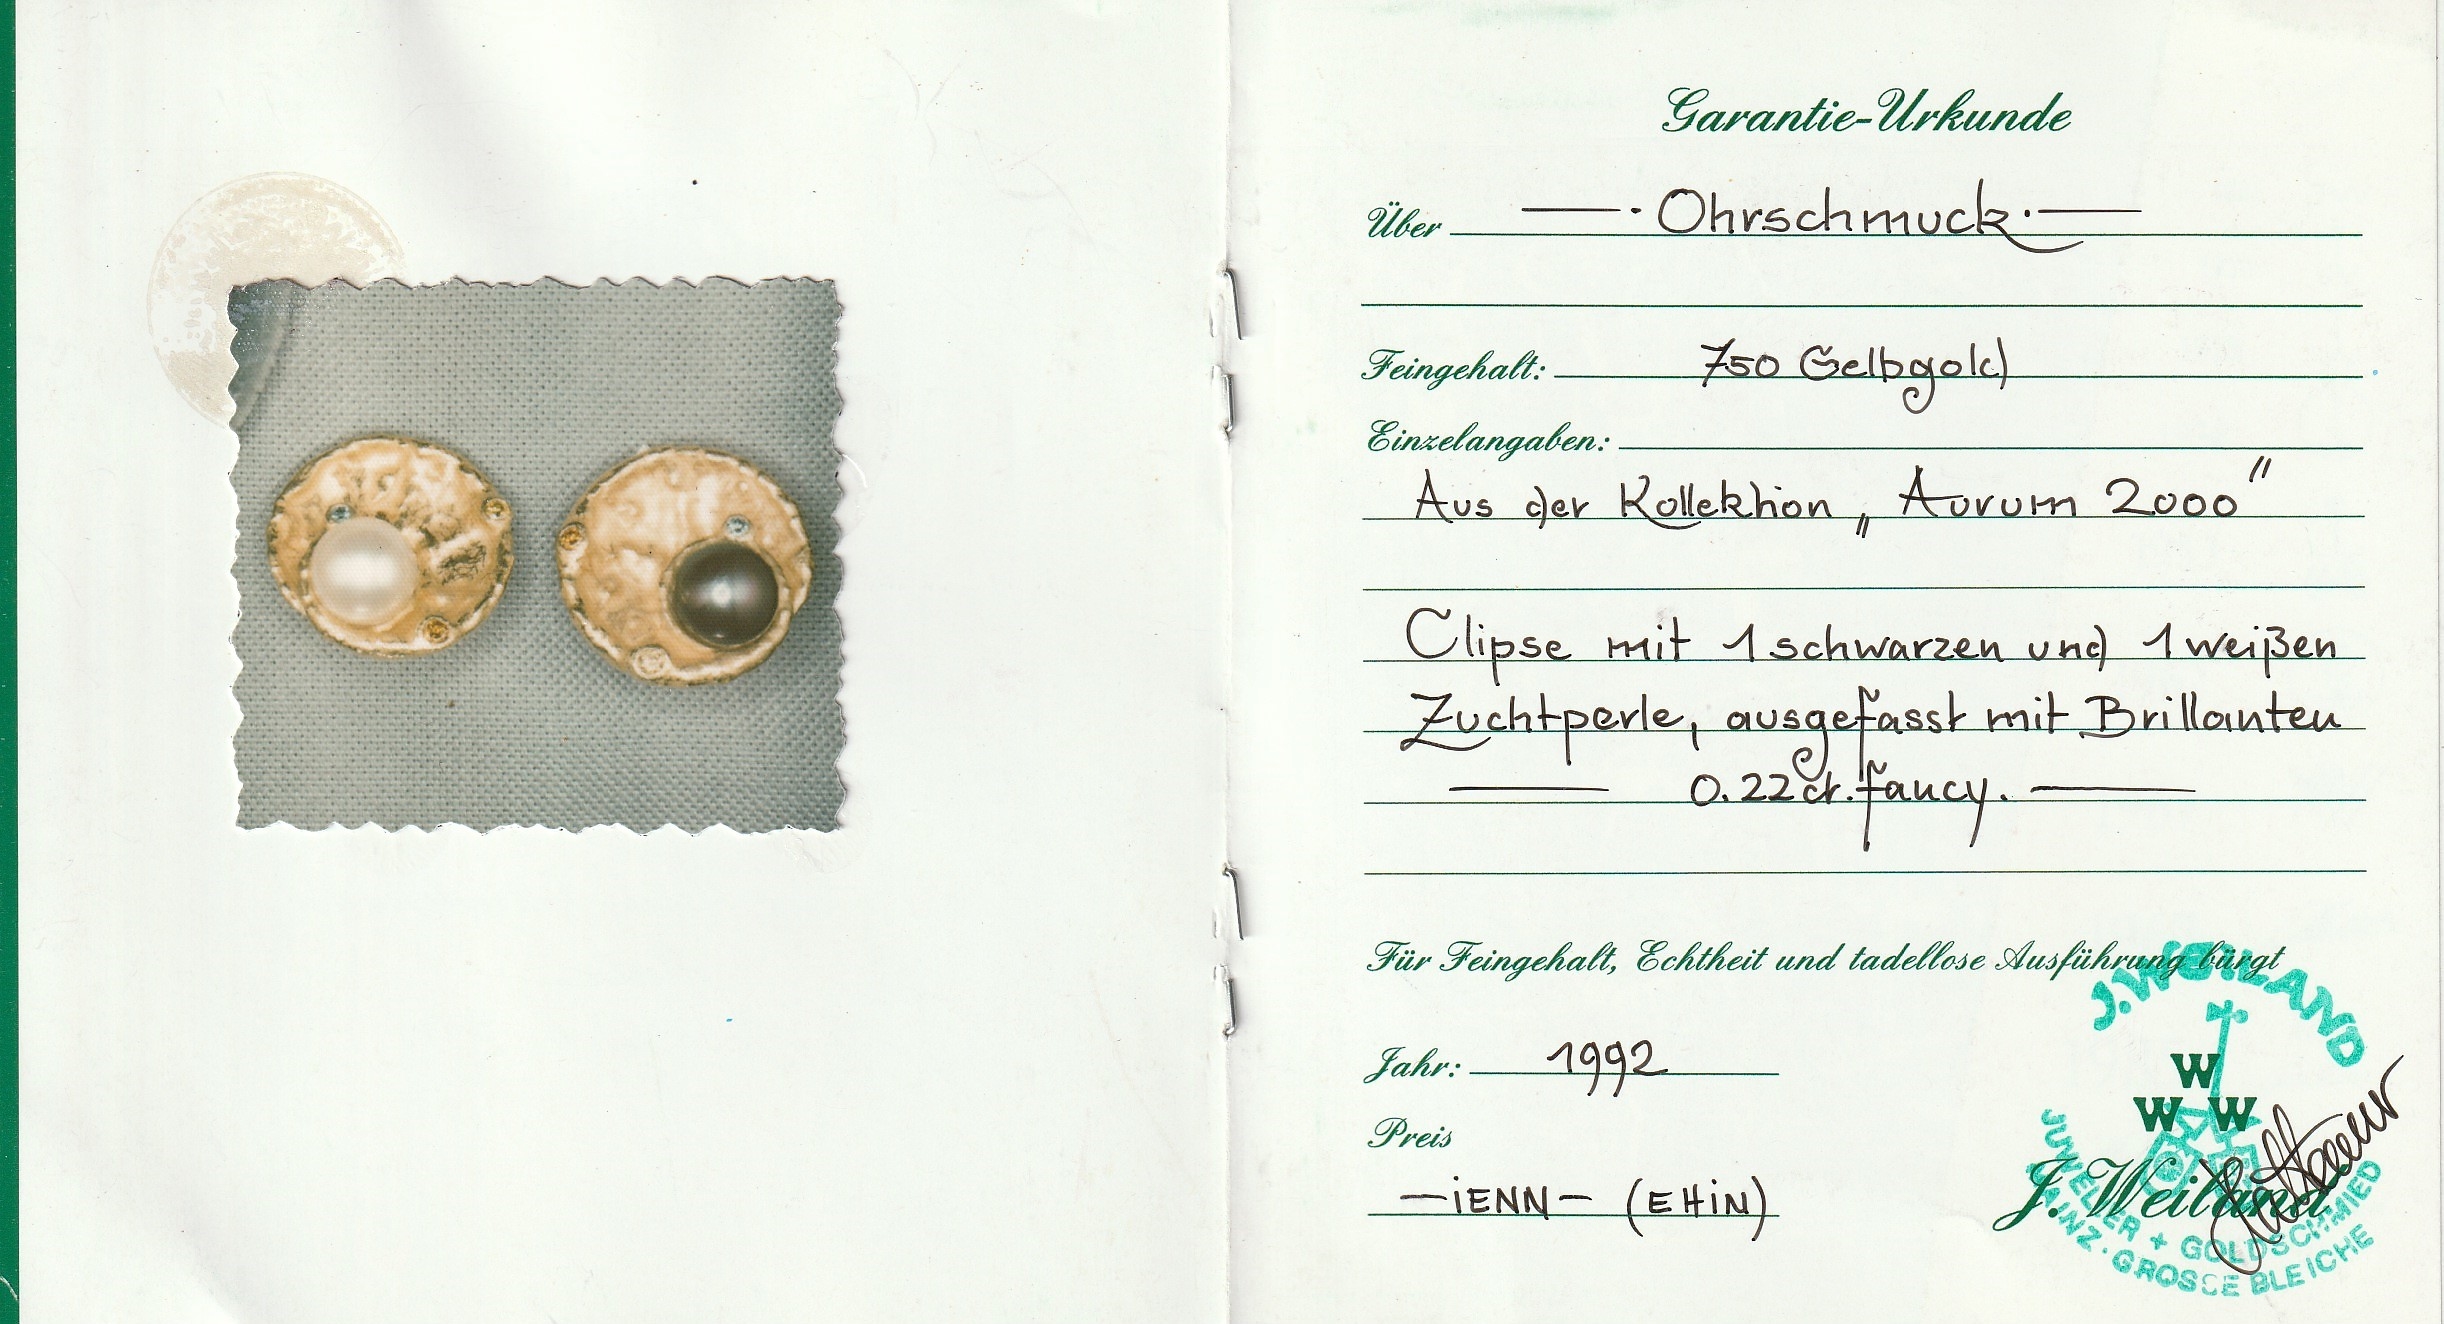 Garantie-Urkunde
Über —· Ohrschmuck ·—
Feingehalt: 750 Gelbgold
Einzelangaben:
Aus der Kollektion „Aurum 2000"
Clipse mit 1 schwarzen und 1 weißen
Zuchtperle, ausgefasst mit Brillanten
— 0.22 ct. fancy. —
Für Feingehalt, Echtheit und tadellose Ausführung bürgt
Jahr: 1992
Preis
—iENN— (EHiN)
J. WEILAND
W
W W
J. Weiland
JUWELIER + GOLDSCHMIED
MAINZ · GROSSE BLEICHE